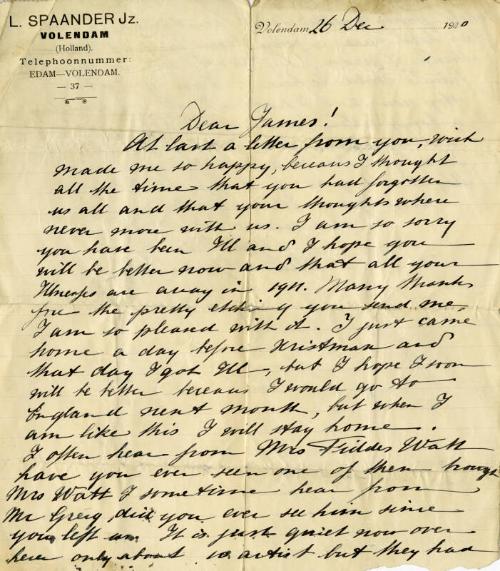 L. SPAANDER Jz.
VOLENDAM
(Holland).
Telephoonnummer:
EDAM—VOLENDAM.
— 37 —
Volendam 26 Dec 1910
Dear James!
At last a letter from you, wich
made me so happy, becaus I thought
all the time that you had forgotten
us all and that your thoughts where
never more with us. I am so sorry
you have been Ill and I hope you
will be better now and that all your
Illnesses are away in 1911. Many thanks
for the pretty etching you send me,
I am so pleased with it. I just came
home a day before Kristman and
that day I got Ill, but I hope I soon
will be better becaus I would go to
England next month, but when I
am like this I will stay home.
I often hear from Mrs Fildes Watt
have you ever seen one of them
Mrs Watt I sometime hear from
Mr Greig, did you ever see him since
you left um It is just quiet now over
here only about artist but they had